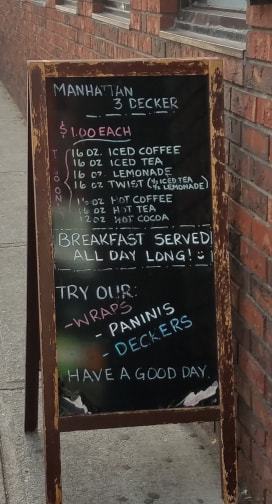 MANHATTAN
3 DECKER
$1.00 EACH
16 OZ. ICED COFFEE
16 OZ ICED TEA
16 OZ. LEMONADE
16 OZ TWIST (½ ICED TEA
½ LEMONADE)
HOT COFFEE
16 OZ HOT TEA
12 OZ HOT COCOA
BREAKFAST SERVED
ALL DAY LONG!
TRY OUR:
-WRAPS
- PANINIS
- DECKERS
HAVE A GOOD DAY.